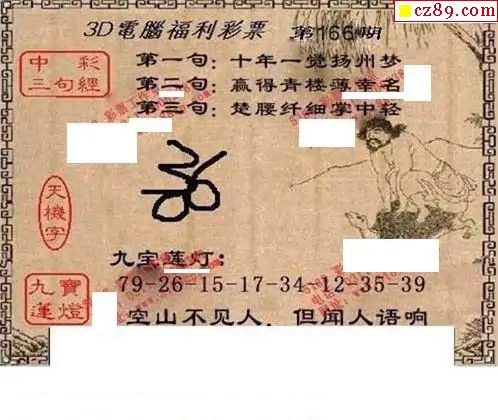 cz89.com
3D電腦福利彩票 第166期
中彩三句經
第一句：十年一觉扬州梦
第二句：赢得青楼薄幸名
第三句：楚腰纤细掌中轻
天機字
九宝莲灯：
79-26-15-17-34 12-35-39
九寶蓮燈
空山不见人，但闻人语响